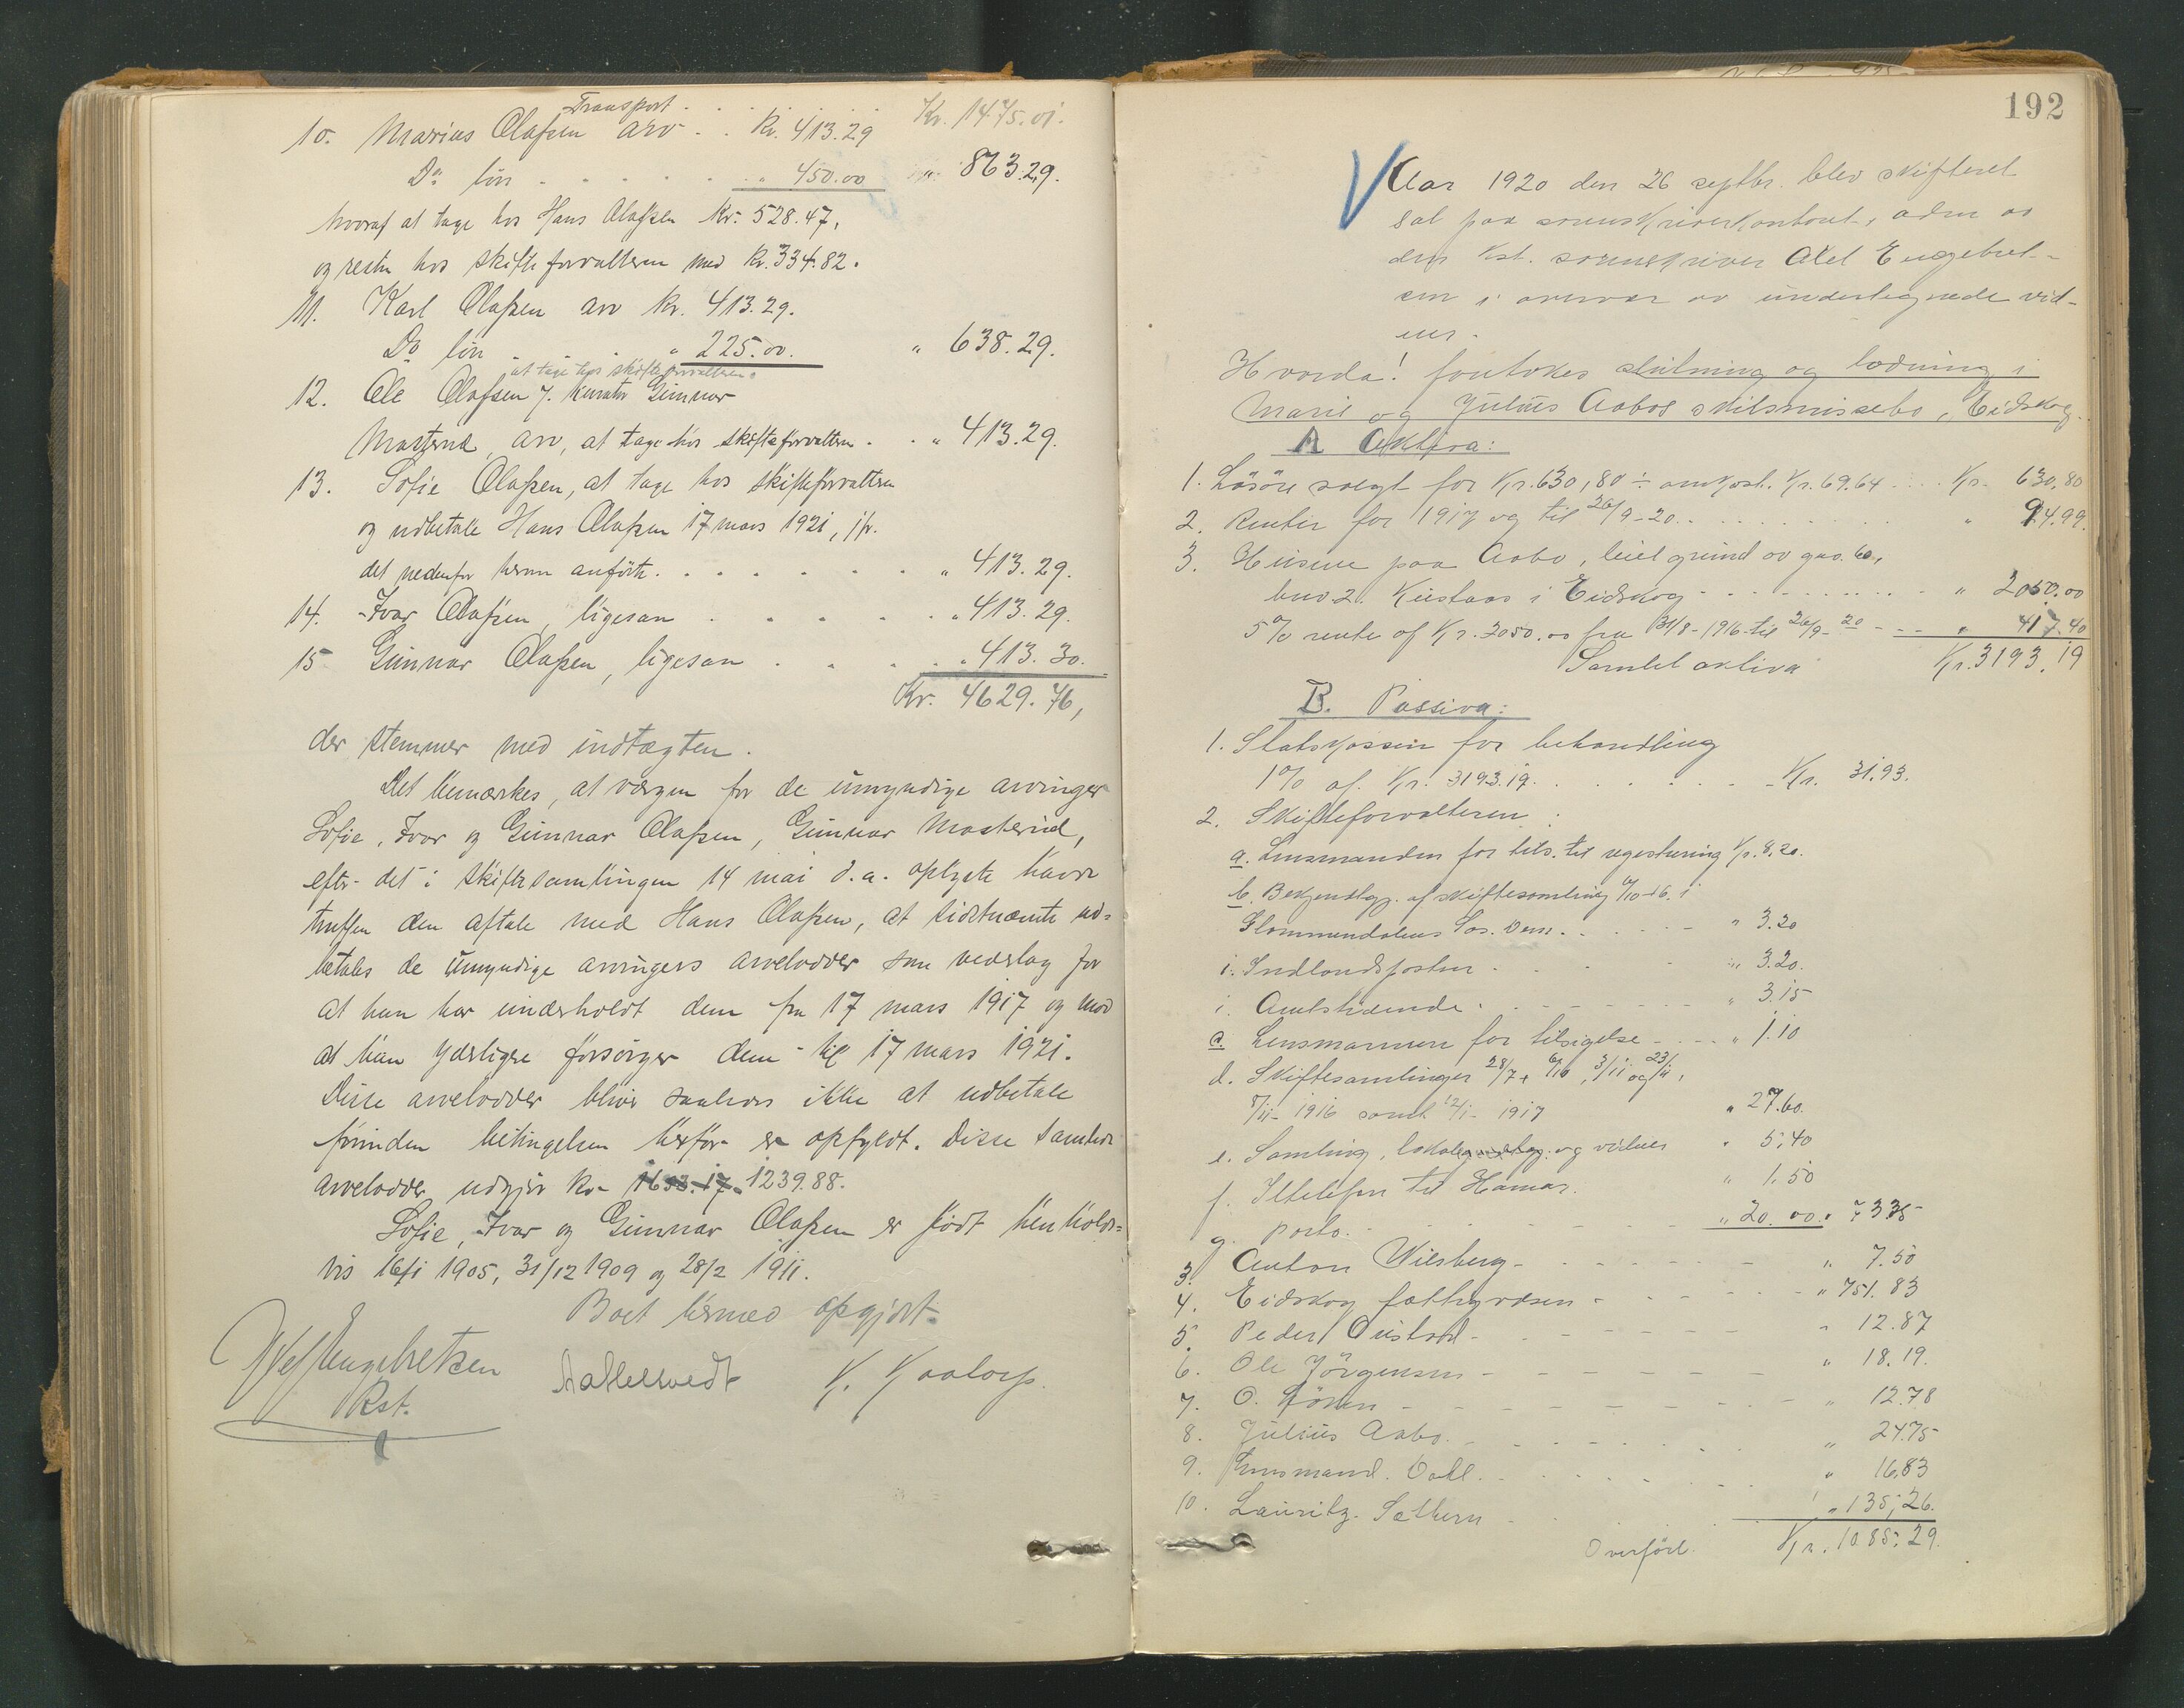 Transport . . . Kr. 1475.01.
10. Marius Olafsen arv . . Kr. 413.29
Do løn . . . . . . „ 450.00 „ 863.29.
hvoraf at tage hos Hans Olafsen Kr. 528.47,
og resten hos skifteforvalteren med Kr. 334.82.
11. Karl Olafsen arv Kr. 413.29.
Do løn . . „ 225.00. „ 638.29.
at tage hos skifteforvalteren.
12. Ole Olafsen / Kurator Gunnar
Masterud, arv, at tage hos skifteforvalteren . . „ 413.29.
13. Sofie Olafsen, at tage hos skifteforvalteren
og udbetale Hans Olafsen 17 mars 1921, jfr.
det nedenfor herom anførte . . . . . . . „ 413.29.
14. Ivar Olafsen, ligesaa . . . . . „ 413.29.
15 Gunnar Olafsen, ligesaa . . . . „ 413.30.
Kr. 4629.76,
der stemmer med indtægten.
Det bemærkes, at værgen for de umyndige arvinger
Sofie, Ivar og Gunnar Olafsen, Gunnar Masterud,
efter det i skiftesamlingen 14 mai d.a. oplyste havde
truffen den aftale med Hans Olafsen, at sidstnævnte ud=
betales de umyndige arvingers arvelodder som vederlag for
at han har underholdt dem fra 17 mars 1917 og mod
at han yderligere forsørger dem til 17 mars 1921.
Disse arvelodder bliver saaledes ikke at udbetale
forinden betingelsen herfor er opfyldt. Disse samlede
arvelodder udgjør kr. 1653.17. 1239.88.
Sofie, Ivar og Gunnar Olafsen er født henholds=
vis 16/1 1905, 31/12 1909 og 28/2 1911.
Boet hermed opgjort.
Axel Engebretsen
Kst.
K. Kaatorp.
192
Aar 1920 den 26 septbr. blev skifteret
sat paa sorenskriverkontoret, adm av
den kst. sorenskriver Axel Engebret-
sen i overvær av undertegnede vid-
ner.
Hvorda! foretokes slutning og lodning i
Marie og Julius Aabos skilsmissebo, Eidskog.
A Aktiva:
1. Løsøre solgt for Kr. 630,80 ÷ omkost. Kr. 69.64 . . . . Kr. 630,80
2. Renter for 1917 og til 26/9-20 . . . . . . . „ 94.99.
3. Husene paa Aabo, leiet grund av gno. 60,
bno 2. Kustaas i Eidskog . . . . . . . . „ 2050.00
5% rente af Kr. 2050.00 fra 31/8-1916 til 26/9-20 - - - „ 417.40
Samlet aktiva Kr. 3193.19
B. Passiva:
1. Statskassen for behandling
1% af Kr. 3193.19. . . . . . . . Kr. 31.93.
2. Skifteforvalteren :
a. Lensmanden for tils. til registrering Kr. 8.20.
b. Bekjendtgj. af skiftesamling 6/10-16. i
Glommendalens Sos. Dem. . . . . . „ 3.20
i. Indlandsposten . . . . „ 3.20.
i. Amtstidende . . . . . . „ 3.15
c. Lensmannen for tilsigelse - . . . „ 1.10
d. Skiftesamlinger 28/7, 6/10, 3/11 og 23/11,
1916 samt 12/1- 1917 „ 27.60.
e. Samling, lokale og vidner „ 5.40
f. Iltelefon til Hamar. „ 1.50
g. porto. - - - - „ 20.00. „ 73.35
3. Anton Vilsberg - - - - - „ 7.50
4. Eidskog fattigvæsen - - - - „ 751.83
5. Peder - - - - - - „ 12.87
6. Ole Jørgensen - - - - - „ 18.19.
7. O. - - - - - - - „ 12.78
8. Julius Aabo. - . . . . . „ 24.75
9. Lensmand. Dahl. - . . . . . „ 16.83
10. Lauritz Sæthern - . . . . „ 135,26.
Overført. Kr. 1085.29.